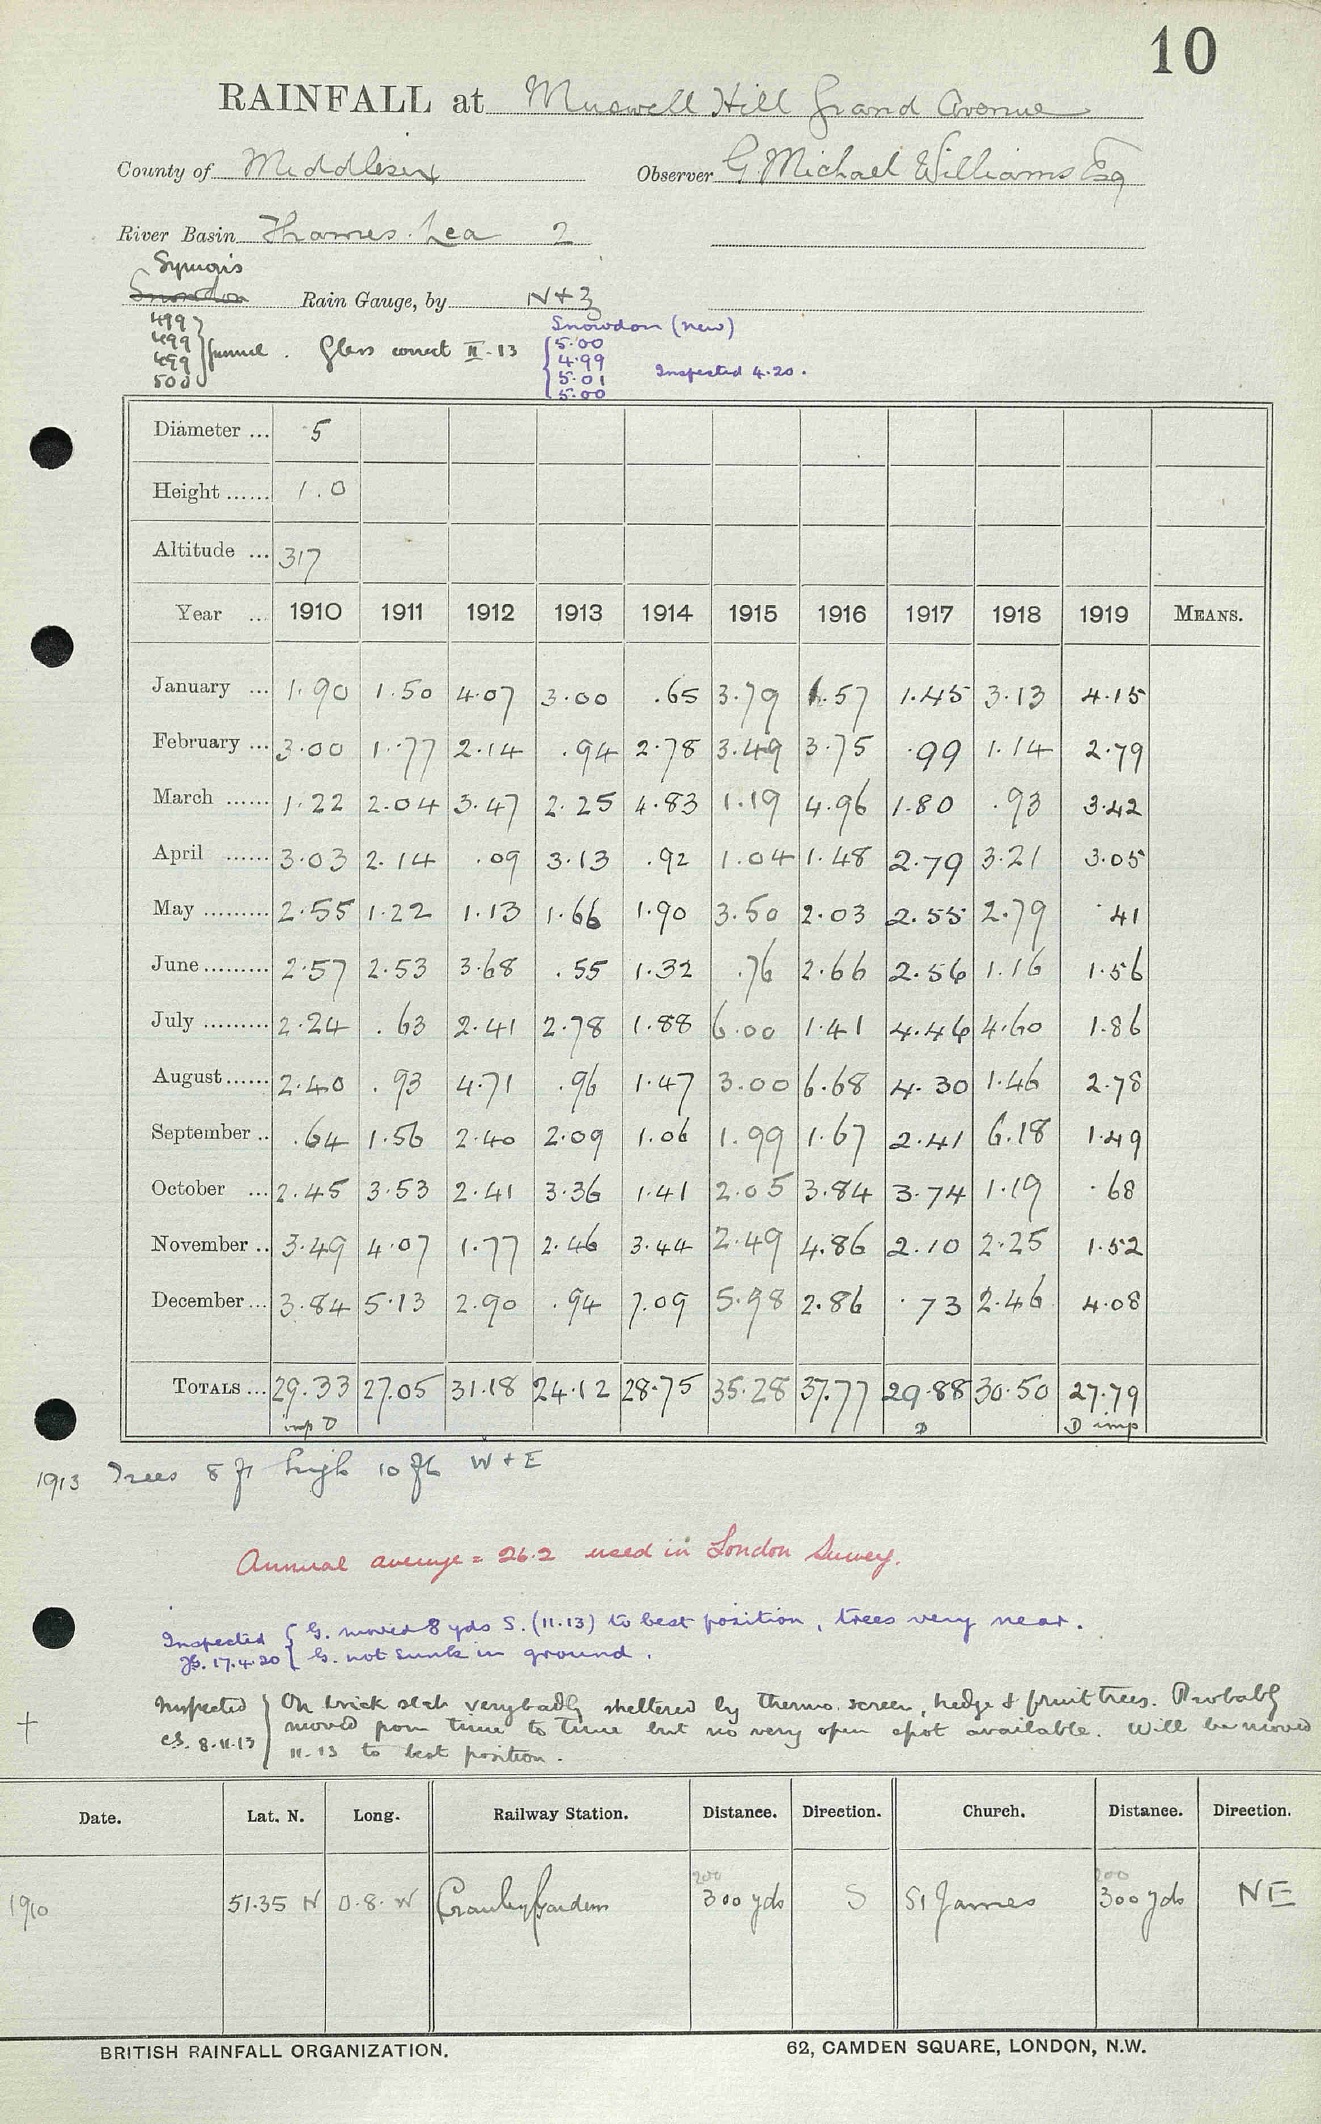 10
RAINFALL at Muswell Hill Grand Avenue
County of Middlesex Observer G. Michael Williams Esq
River Basin Thames. Lea 2
Symons
Snowdon Rain Gauge, by N + Z
499
499
499
500 } funnel. Glass correct II.13
Snowdon (new)
5.00
4.99
5.01
5.00
Inspected 4.20.
Diameter ... 5
Height ...... 1.0
Altitude ... 317
Year ... 1910 1911 1912 1913 1914 1915 1916 1917 1918 1919 MEANS.
January ... 1.90 1.50 4.07 3.00 .65 3.79 1.57 1.45 3.13 4.15
February ... 3.00 1.77 2.14 .94 2.78 3.49 3.75 .99 1.14 2.79
March ...... 1.22 2.04 3.47 2.25 4.83 1.19 4.96 1.80 .93 3.42
April ...... 3.03 2.14 .09 3.13 .92 1.04 1.48 2.79 3.21 3.05
May ......... 2.55 1.22 1.13 1.66 1.90 3.50 2.03 2.55 2.79 .41
June ......... 2.57 2.53 3.68 .55 1.32 .76 2.66 2.56 1.16 1.56
July ......... 2.24 .63 2.41 2.78 1.88 6.00 1.41 4.46 4.60 1.86
August ...... 2.40 .93 4.71 .96 1.47 3.00 6.68 4.30 1.46 2.78
September .. .64 1.56 2.40 2.09 1.06 1.99 1.67 2.41 6.18 1.49
October ... 2.45 3.53 2.41 3.36 1.41 2.05 3.84 3.74 1.19 .68
November .. 3.49 4.07 1.77 2.46 3.44 2.49 4.86 2.10 2.25 1.52
December ... 3.84 5.13 2.90 .94 7.09 5.98 2.86 .73 2.46 4.08
TOTALS ... 29.33 27.05 31.18 24.12 28.75 35.28 37.77 29.88 30.50 27.79
imp D D D imp
1913 Trees 8 ft high 10 ft W + E
Annual average = 26.2 used in London Survey.
Inspected { G. moved 8 yds S. (11.13) to best position, trees very near.
17.4.20 { G. not sunk in ground.
Inspected } On brick slab very badly sheltered by thermo. screen, hedge & fruit trees. Probably
+ CS. 8.11.13 moved from time to time but no very open spot available. Will be moved
11.13 to best position.
Date. Lat. N. Long. Railway Station. Distance. Direction. Church. Distance. Direction.
200 200
1910 51.35 N 0.8. W Cranley Gardens 300 yds S St James 300 yds NE
BRITISH RAINFALL ORGANIZATION. 62, CAMDEN SQUARE, LONDON, N.W.